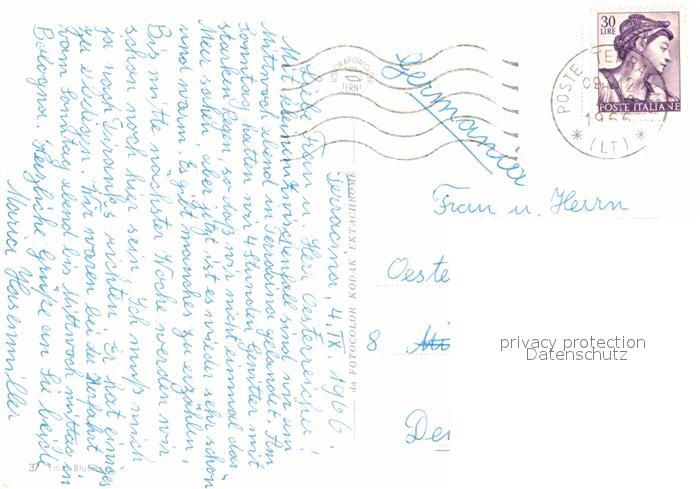 Terracina, 4. IX. 1966.
Liebe Frau u. Herr Oesterreicher!
Mit einem Zwischenfall sind wir am
Mittwoch abend in Terracina gelandet. Am
Sonntag hatten wir 4 Stunden Gewitter mit
starken Regen, so daß wir nicht einmal das
Meer sahen, aber jetzt ist es wieder sehr schön
und warm. Es gibt manches zu erzählen,
Bis Mitte nächster Woche werden wir
schon noch hier sein. Ich muß mich
ja nach Finninks richten. Er hat einiges
zu erledigen. Wir waren bei der Herfahrt
vom Sonntag abend bis Mittwoch mittag in
Bologna. Herzliche Grüße an Sie beide
Maria Hasenmüller
Germania
Frau u. Herrn
Oeste
8 Mü
Deu
30
LIRE
POSTE ITALIANE
POSTE TERR
1966
(LT)
TERNI
da FOTOCOLOR KODAK EKTACHROME
37
privacy protection
Datenschutz